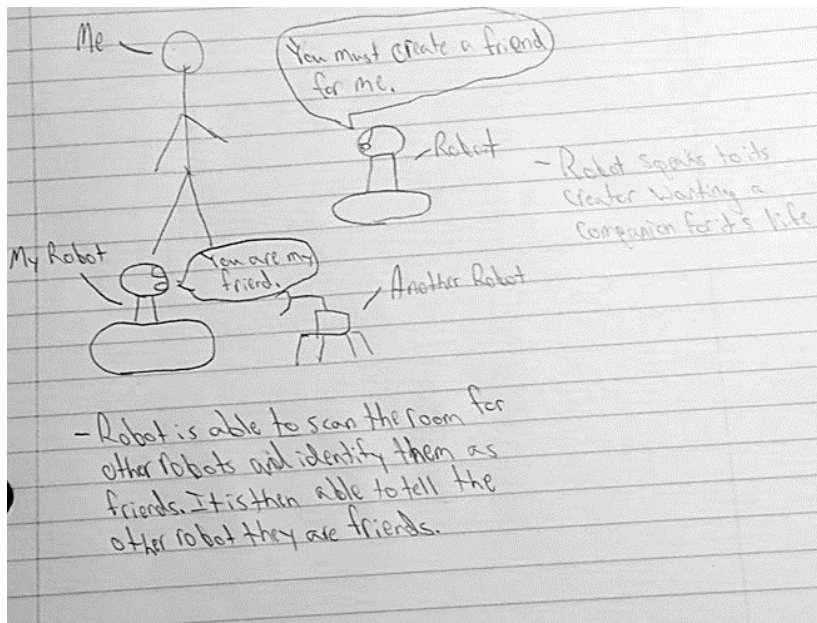 Me
You must create a friend
for me.
Robot
- Robot speaks to its
creator wanting a
companion for it's life
My Robot
You are my
friend.
Another Robot
- Robot is able to scan the room for
other robots and identify them as
friends. It is then able to tell the
other robot they are friends.